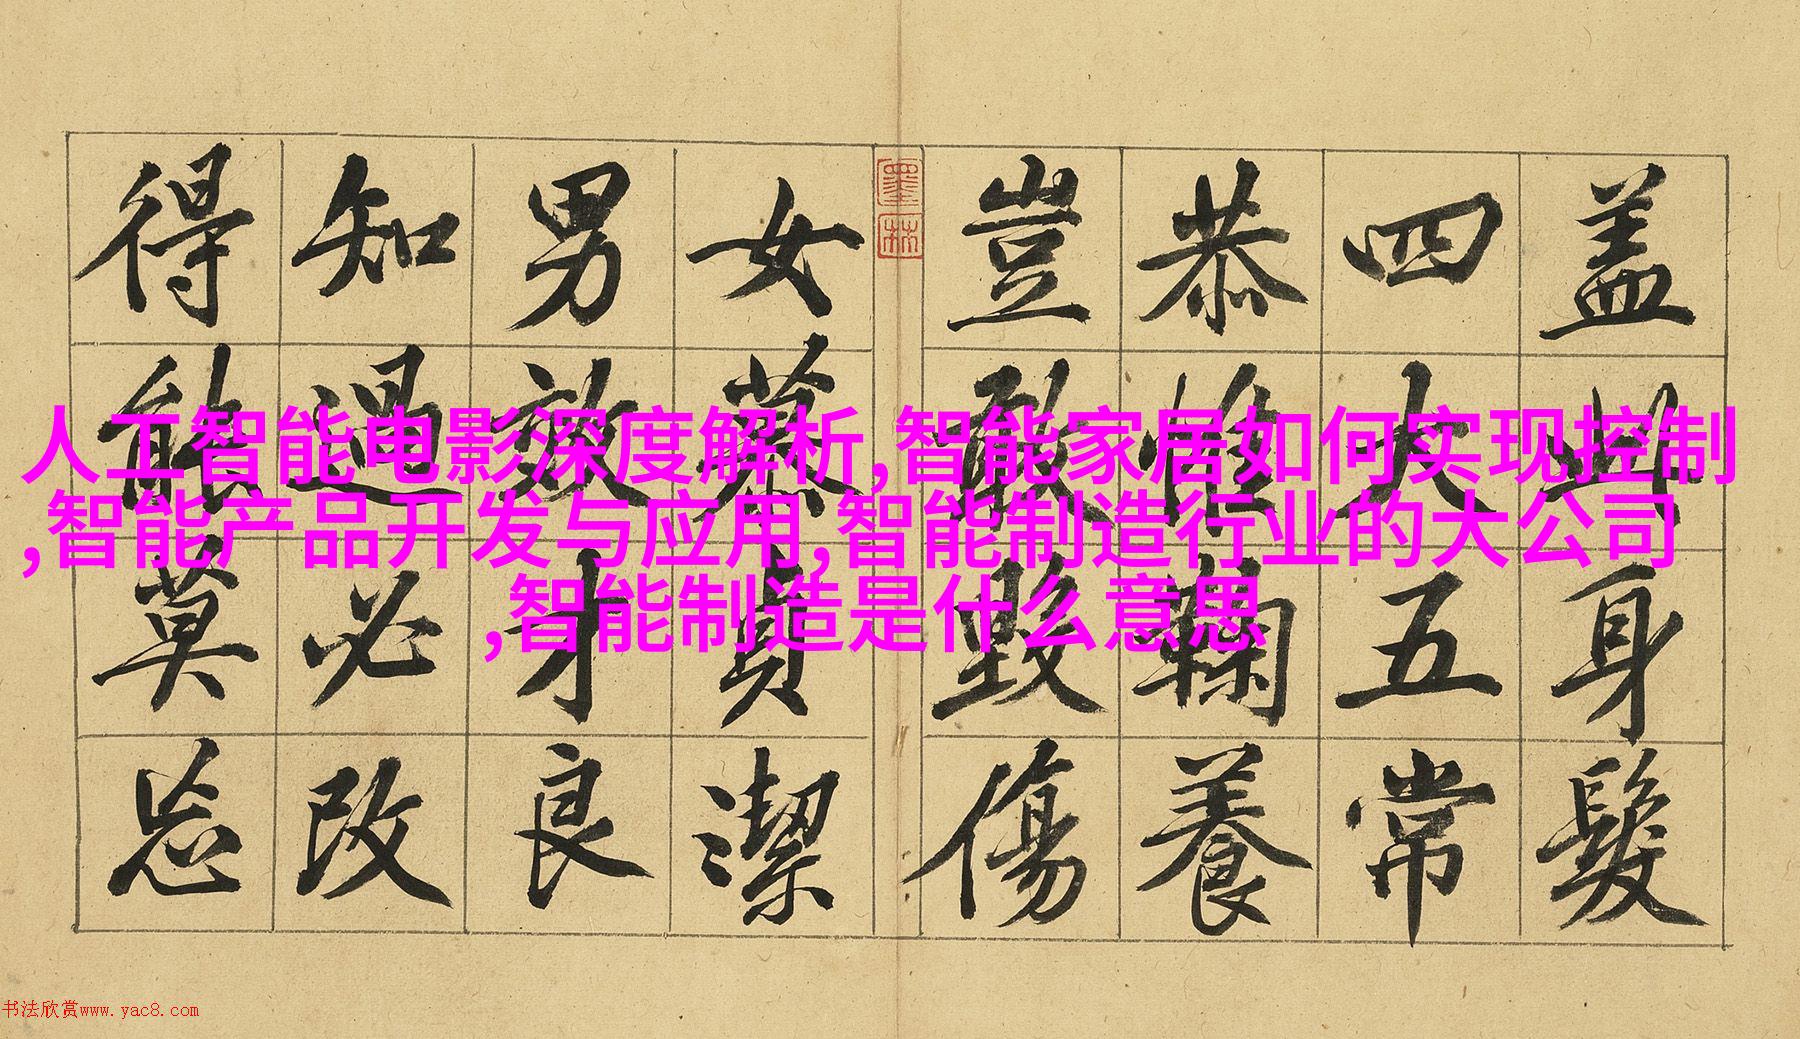 盖此身髮
四大五常
恭惟鞠養
豈敢毀傷
墨林
女慕貞潔
男效才良
知過必改
得能莫忘
人工智能电影深度解析,智能家居如何实现控制
,智能产品开发与应用,智能制造行业的大公司
,智能制造是什么意思
书法欣赏www.yac8.com